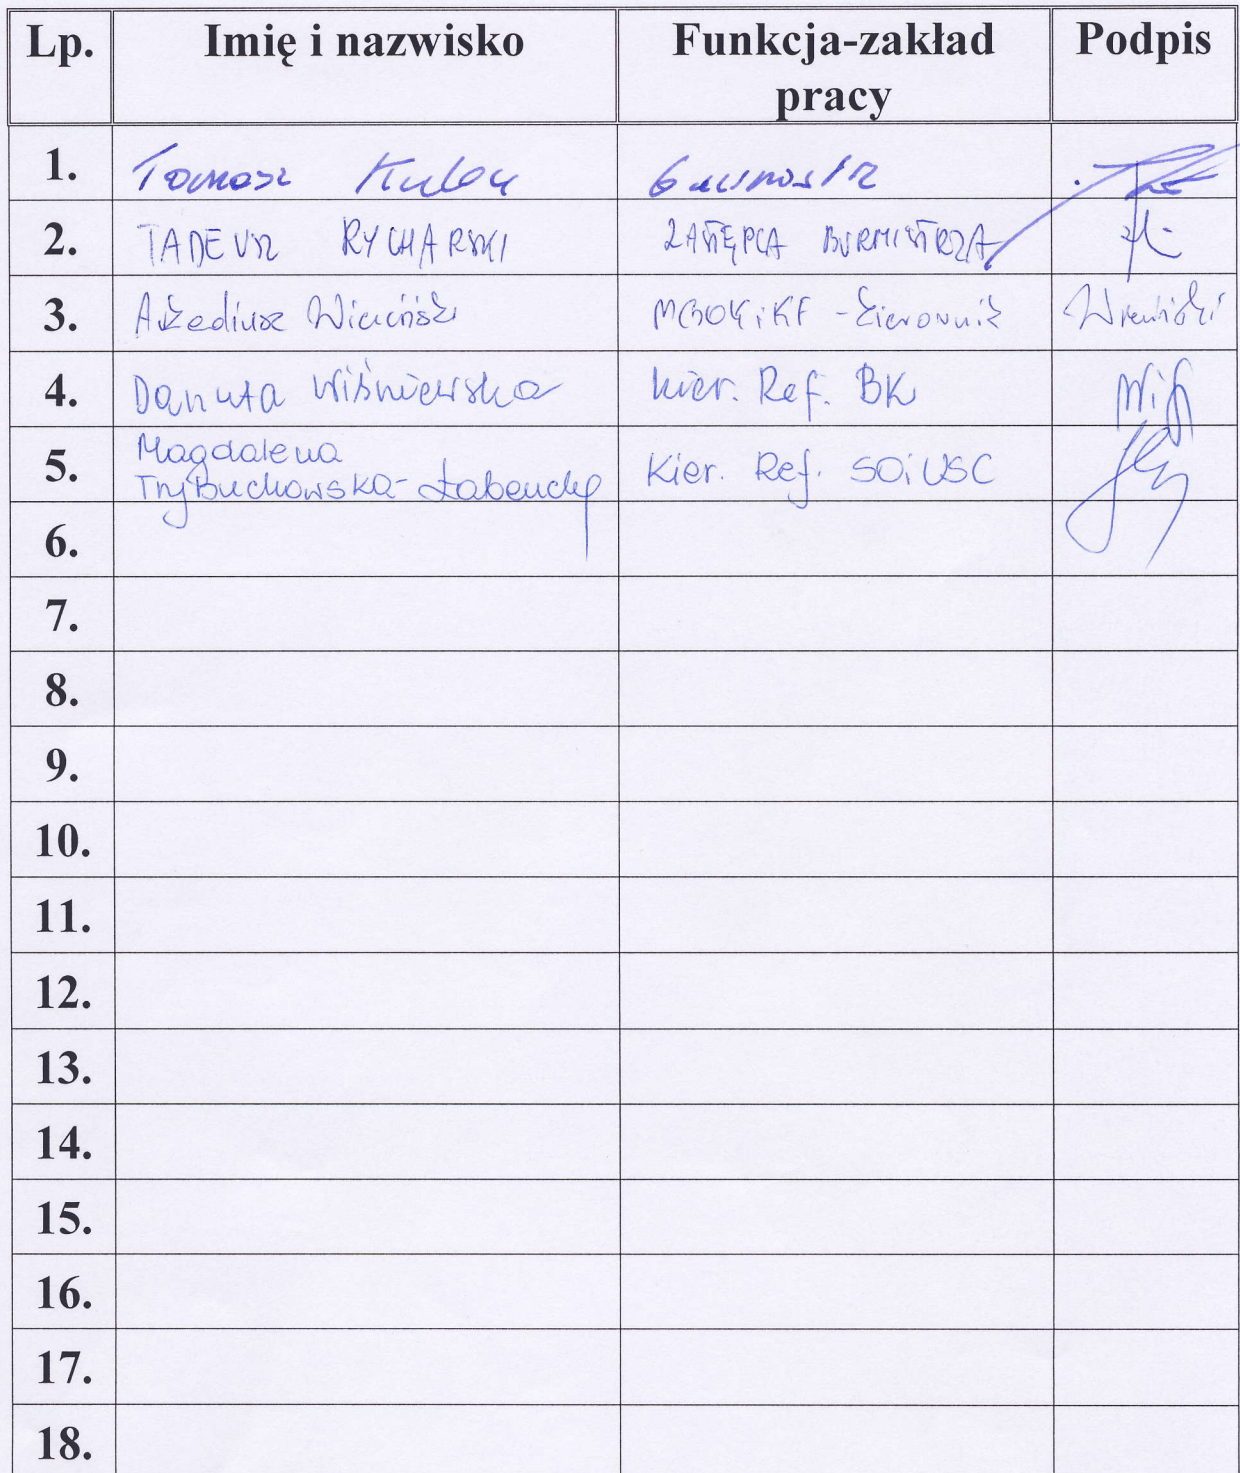 Lp. Imię i nazwisko Funkcja-zakład pracy Podpis
1. Tomasz
2. TADEUSZ RYCHARSKI ZASTĘPCA BURMISTRZA
3. Arkadiusz MGOKiKF - kierownik
4. Danuta Wiśniewska kier. Ref. BK
5. Magdalena
Trybuchowska- Kier. Ref. SOiUSC
6.
7.
8.
9.
10.
11.
12.
13.
14.
15.
16.
17.
18.